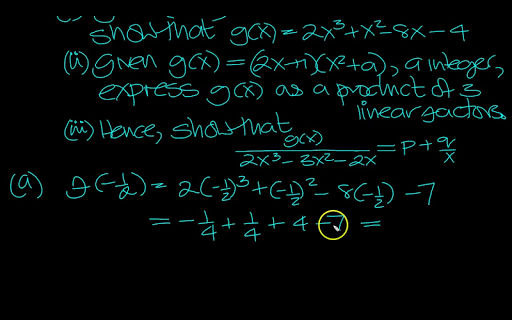 show that g(x) = 2x³ + x² - 8x - 4
(ii) given g(x) = (2x+1)(x²+a), a integer,
express g(x) as a product of 3
linear factors.
(iii) Hence, show that
g(x) / (2x³ - 3x² - 2x) = p + q/x
(a) f(-1/2) = 2(-1/2)³ + (-1/2)² - 8(-1/2) - 7
= -1/4 + 1/4 + 4 - 7 =